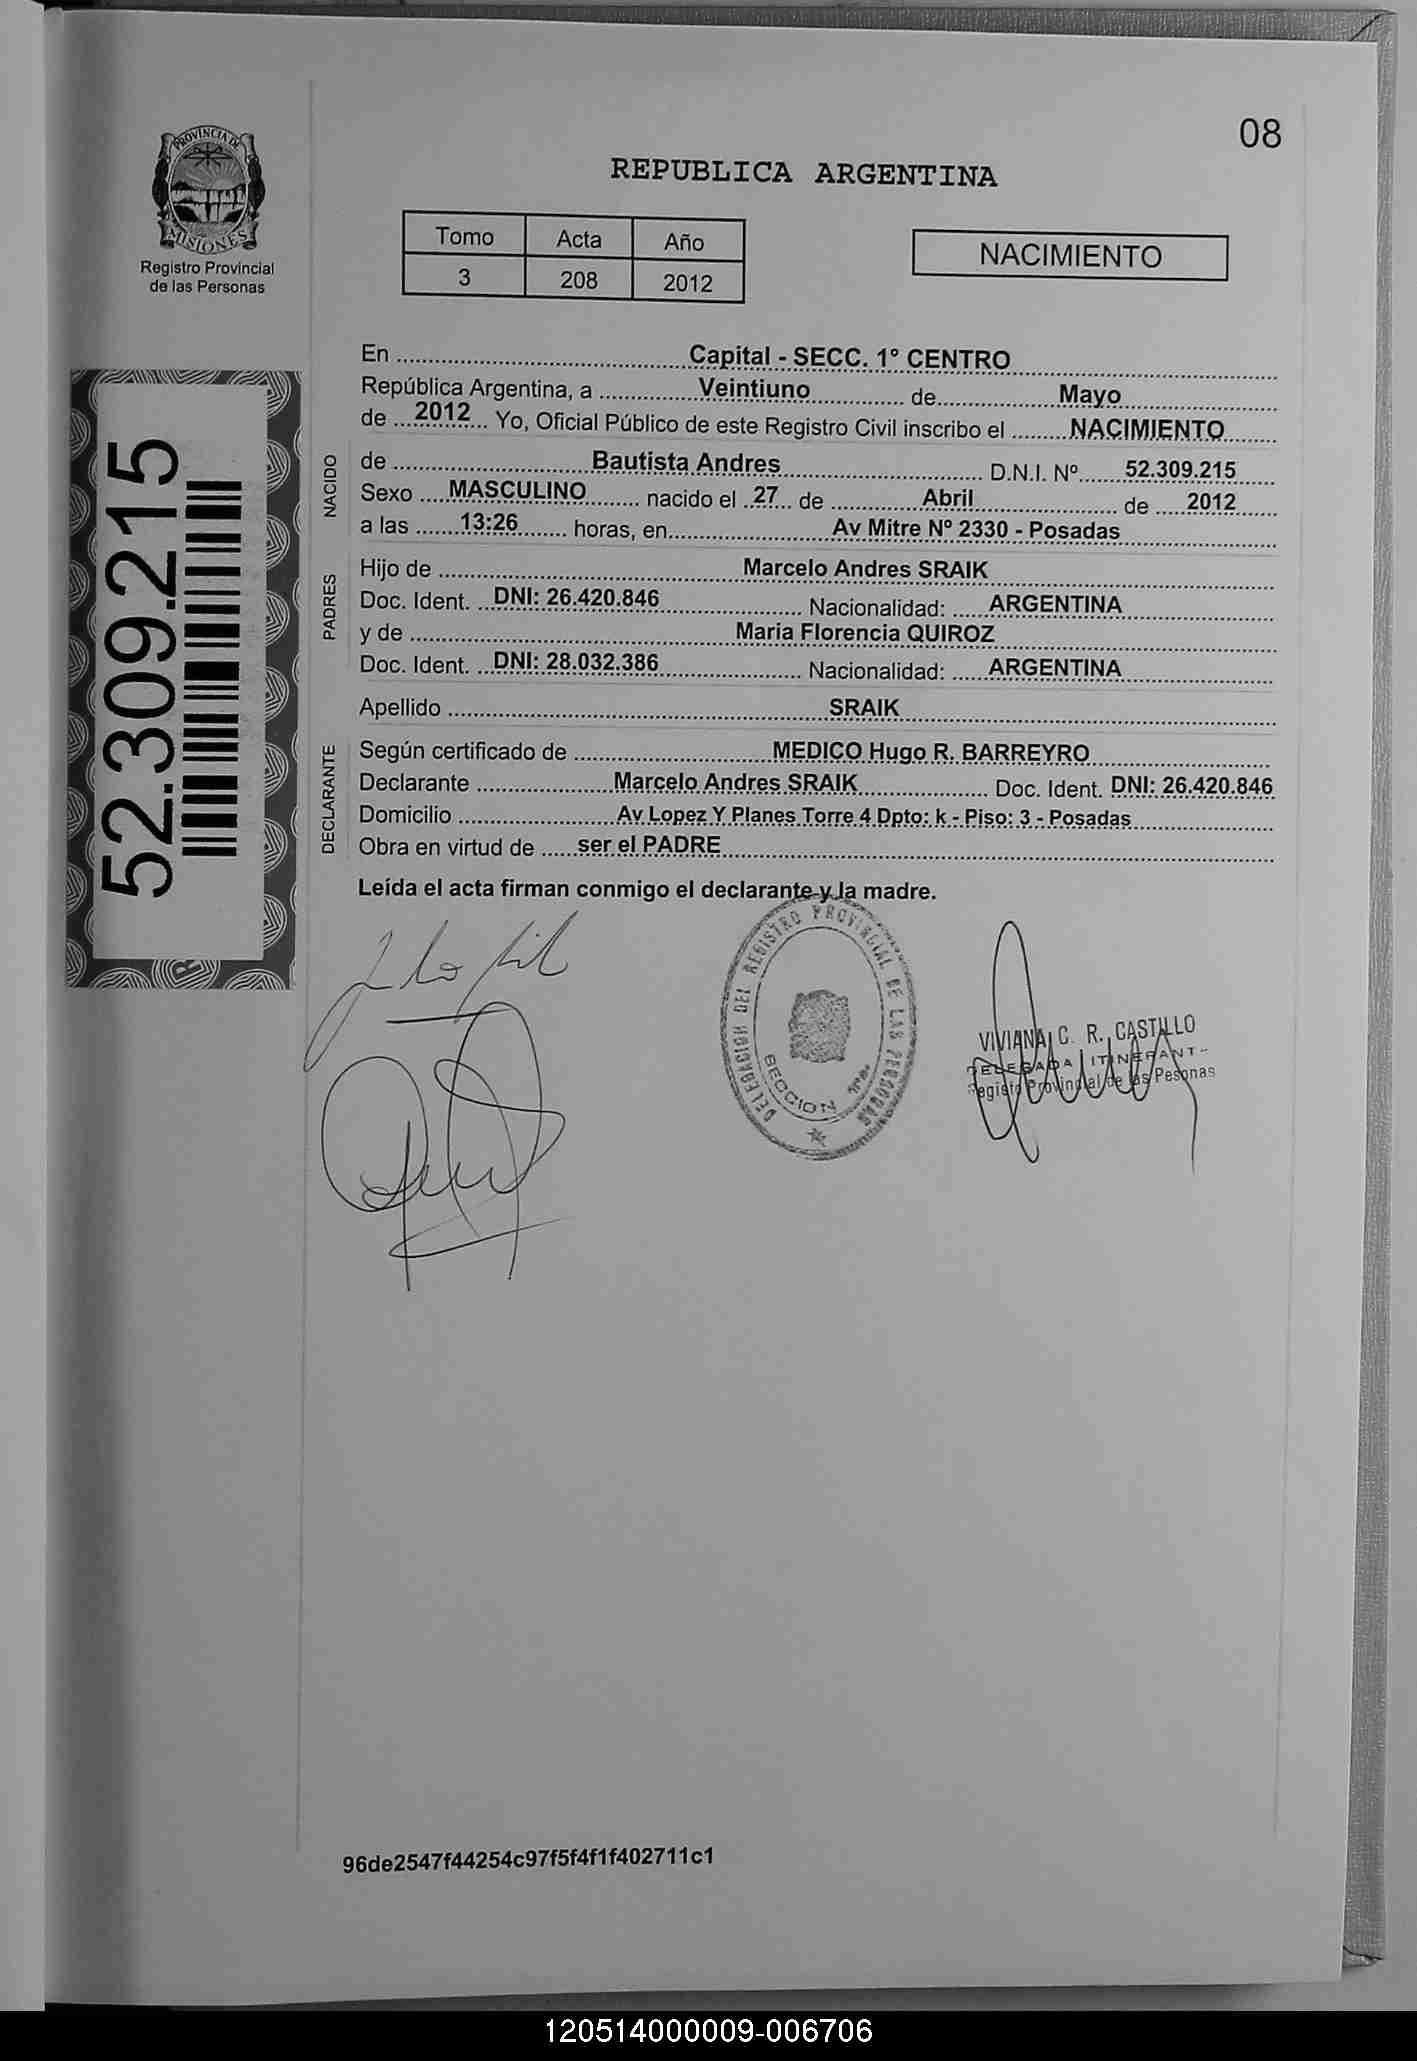 08
PROVINCIA DE
MISIONES
Registro Provincial
de las Personas
REPUBLICA ARGENTINA
Tomo Acta Año
3 208 2012
NACIMIENTO
52.309.215
En Capital - SECC. 1° CENTRO
República Argentina, a Veintiuno de Mayo
de 2012 Yo, Oficial Público de este Registro Civil inscribo el NACIMIENTO
NACIDO
de Bautista Andres D.N.I. Nº 52.309.215
Sexo MASCULINO nacido el 27 de Abril de 2012
a las 13:26 horas, en Av Mitre Nº 2330 - Posadas
PADRES
Hijo de Marcelo Andres SRAIK
Doc. Ident. DNI: 26.420.846 Nacionalidad: ARGENTINA
y de Maria Florencia QUIROZ
Doc. Ident. DNI: 28.032.386 Nacionalidad: ARGENTINA
Apellido SRAIK
DECLARANTE
Según certificado de MEDICO Hugo R. BARREYRO
Declarante Marcelo Andres SRAIK Doc. Ident. DNI: 26.420.846
Domicilio Av Lopez Y Planes Torre 4 Dpto: k - Piso: 3 - Posadas
Obra en virtud de ser el PADRE
Leída el acta firman conmigo el declarante y la madre.
DELEGACION DEL REGISTRO PROVINCIAL DE LAS PERSONAS
SECCION
VIVIANA C. R. CASTILLO
DELEGADA ITINERANT-
Registo Provincial de las Pesonas
96de2547f44254c97f5f4f1f402711c1
120514000009-006706